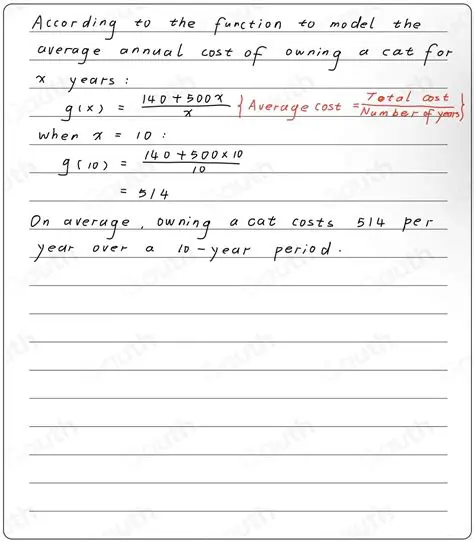 According to the function to model the
average annual cost of owning a cat for
x years :
g(x) = (140+500x)/x { Average cost = Total cost/Number of years }
when x = 10 :
g(10) = (140+500×10)/10
= 514
On average, owning a cat costs 514 per
year over a 10-year period.